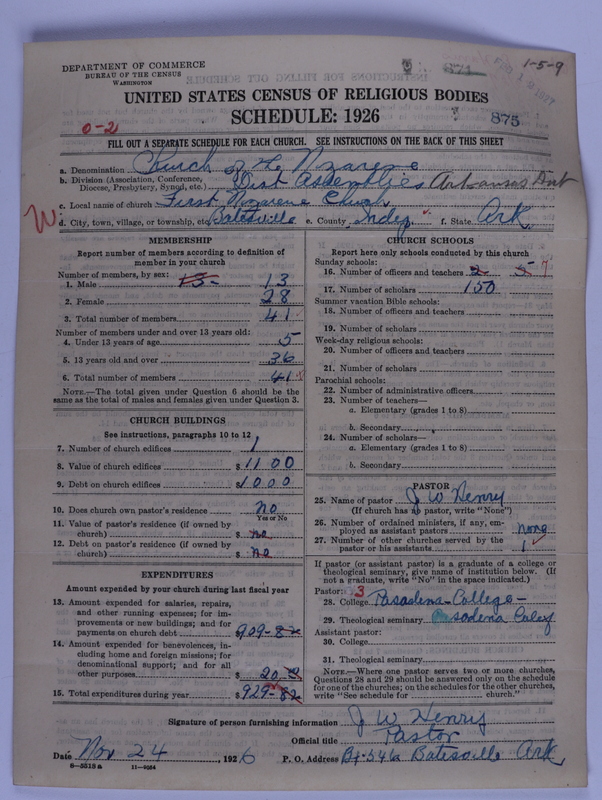 DEPARTMENT OF COMMERCE
BUREAU OF THE CENSUS
WASHINGTON
871
1-5-9
UNITED STATES CENSUS OF RELIGIOUS BODIES
SCHEDULE: 1926
875
0-2
FILL OUT A SEPARATE SCHEDULE FOR EACH CHURCH. SEE INSTRUCTIONS ON THE BACK OF THIS SHEET
a. Denomination Church of the Nazarene
b. Division (Association, Conference, Diocese, Presbytery, Synod, etc.) Dist Assemblies Arkansas Dist
c. Local name of church First Nazarene Church
d. City, town, village, or township, etc. Batesville e. County Indep. f. State Ark.
MEMBERSHIP
Report number of members according to definition of
member in your church
Number of members, by sex:
1. Male 15 13
2. Female 28
3. Total number of members 41
Number of members under and over 13 years old:
4. Under 13 years of age 5
5. 13 years old and over 36
6. Total number of members 41
NOTE.—The total given under Question 6 should be the
same as the total of males and females given under Question 3.
CHURCH BUILDINGS
See instructions, paragraphs 10 to 12
7. Number of church edifices 1
8. Value of church edifices $1100
9. Debt on church edifices $1000
10. Does church own pastor's residence? no
Yes or No
11. Value of pastor's residence (if owned by
church) $ no
12. Debt on pastor's residence (if owned by
church) $ no
EXPENDITURES
Amount expended by your church during last fiscal year
13. Amount expended for salaries, repairs,
and other running expenses; for im-
provements or new buildings; and for
payments on church debt 909-82
14. Amount expended for benevolences, in-
cluding home and foreign missions; for
denominational support; and for all
other purposes $ 20
15. Total expenditures during year $929-82
CHURCH SCHOOLS
Report here only schools conducted by this church
Sunday schools:
16. Number of officers and teachers 2 5 7
17. Number of scholars 150
Summer vacation Bible schools:
18. Number of officers and teachers
19. Number of scholars
Week-day religious schools:
20. Number of officers and teachers
21. Number of scholars
Parochial schools:
22. Number of administrative officers
23. Number of teachers—
a. Elementary (grades 1 to 8)
b. Secondary
24. Number of scholars—
a. Elementary (grades 1 to 8)
b. Secondary
PASTOR
25. Name of pastor J W Henry
(If church has no pastor, write "None")
26. Number of ordained ministers, if any, em-
ployed as assistant pastors none
27. Number of other churches served by the
pastor or his assistants 1
If pastor (or assistant pastor) is a graduate of a college or
theological seminary, give name of institution below. (If
not a graduate, write "No" in the space indicated.)
Pastor: 3
28. College Pasadena-College-
29. Theological seminary Pasadena Coley
Assistant pastor:
30. College
31. Theological seminary
NOTE.—Where one pastor serves two or more churches,
Questions 28 and 29 should be answered only on the schedule
for one of the churches; on the schedules for the other churches,
write "See schedule for church."
Signature of person furnishing information J W Henry
Official title Pastor
Date Nov 24 1926 P. O. Address Bx 546 Batesville Ark
8-5518a 11-9054